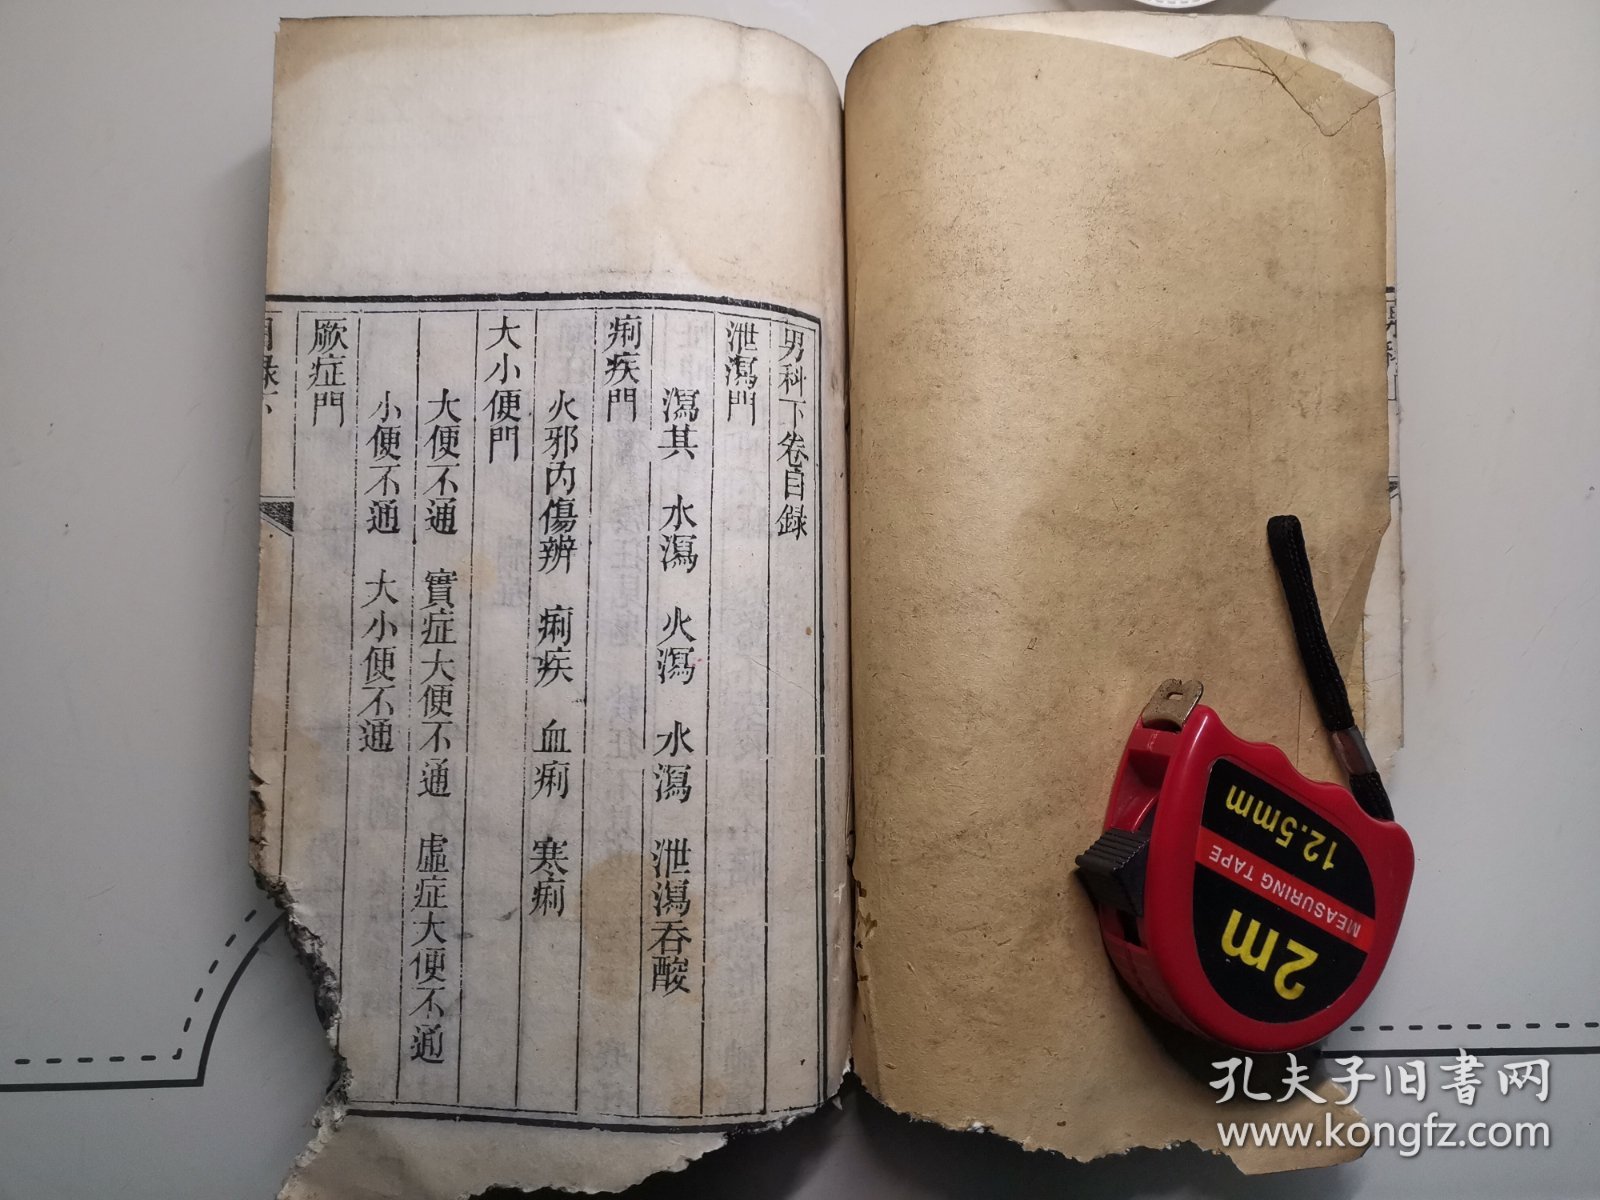 男科下卷目録
泄瀉門
瀉甚 水瀉 火瀉 水瀉 泄瀉吞酸
痢疾門
火邪内傷辨 痢疾 血痢 寒痢
大小便門
大便不通 實症大便不通 虛症大便不通
小便不通 大小便不通
厥症門
目録下
2m
MEASURING TAPE
12.5mm
孔夫子旧書网
www.kongfz.com